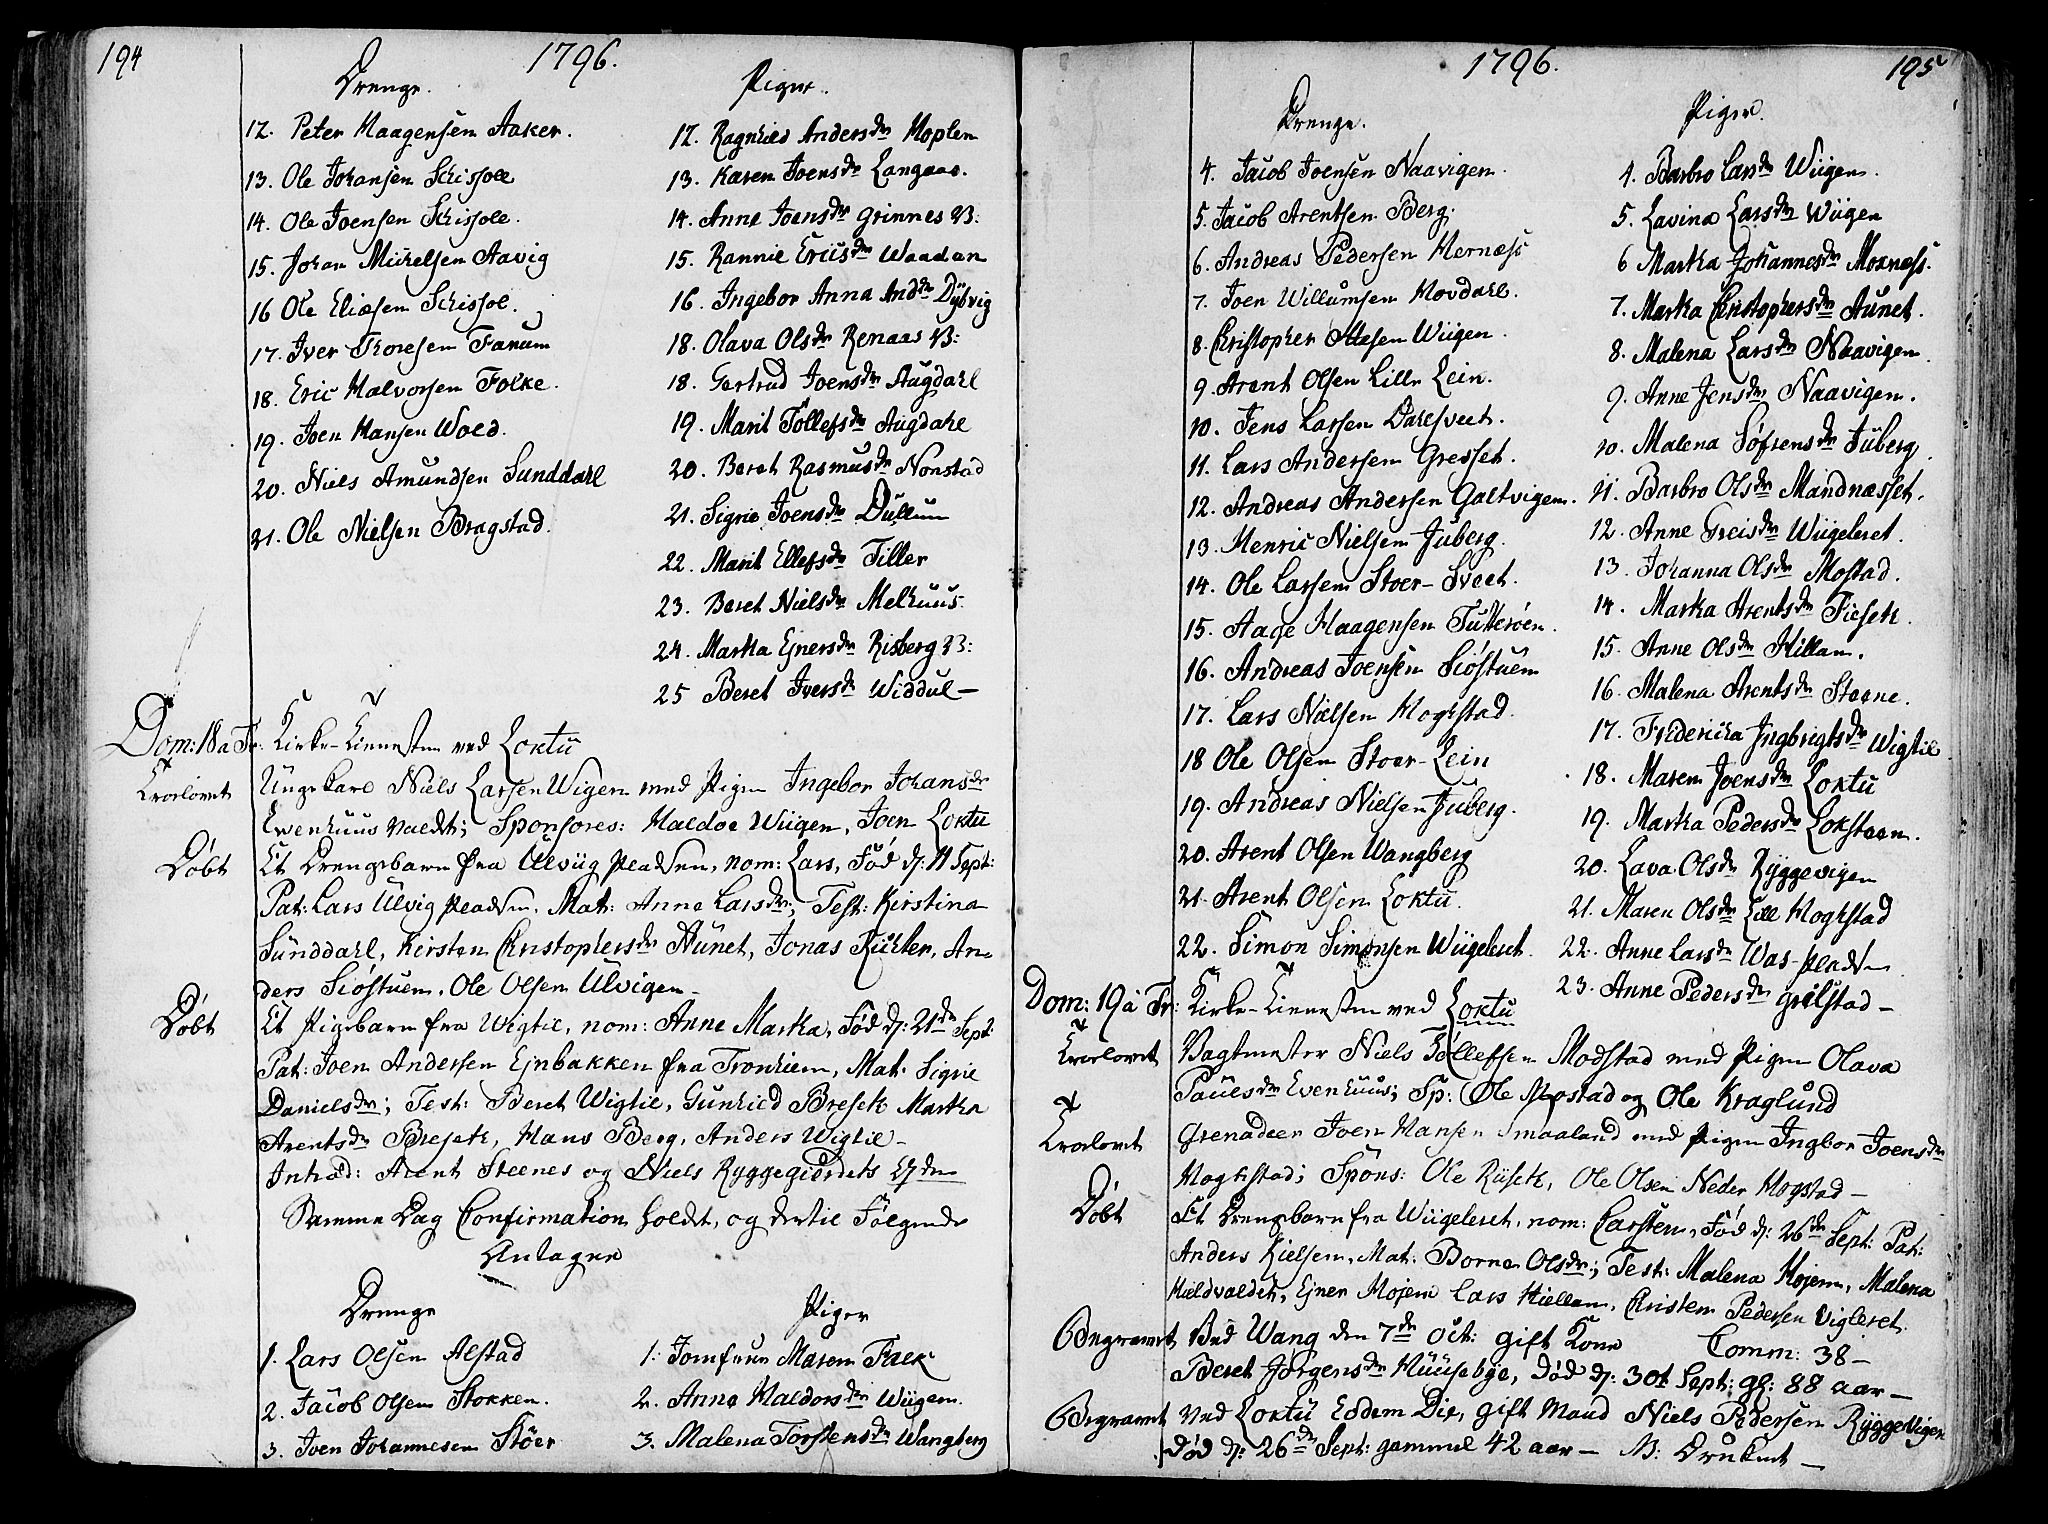 194
1796.
Drenge.
12. Peter Haagensen Aaker.
13. Ole Johansen Schissole
14. Ole Joensen Schissole.
15. Johan Michelsen Aavig
16 Ole Eliasen Schissol.
17. Iver Thoresen Fanum
18. Eric Halvorsen Folke.
19. Joen Hansen Wold.
20. Niels Amundsen Sunddahl
21. Ole Nielsen Bragstad.
Piger.
12. Ragnhild Andersdr Hoplen
13. Karen Joensdr Langaas.
14. Anne Joensdr Grinnes
15. Rannie Ericsdr Waadan
16. Ingebor Anna Anddr Dybvig
18. Olava Olsdr Renaas
18. Gertrud Joensdr Augdahl
19. Marit Tollefsdr Augdahl
20. Beret Rasmusdr Nonstad
21. Sigrie Joensdr Dullum
22. Marit Ellefsdr Tiller
23. Beret Nielsdr Melhuus
24. Martha Ejnersdr Risberg
25 Beret Iversdr Widdul—
Dom: 18 a Tr: Kirke-Tienesten ved Loktu
Trolovet Ungekarl Niels Larsen Wigen med Pigen Ingebor Johansdr
Ewenhuus valdt; Sponsores: Haldoe Wiigen, Joen Loktu
Döbt Et Drengebarn fra Ulviig pladsen, nom: Lars, Föd d: 11 Sept:
Pat: Lars Ulvig pladsen. Mat: Anne Larsdr; Test: Kirstina
Sunddahl, Kirsten Christophersdr Aunet, Jonas Kuhler, An-
ders Siöstuen. Ole Olsen Ulvigen—
Döbt Et Pigebarn fra Wigtil, nom: Anne Martha, Föd d: 21de Sept:
Pat: Joen Andersen Ejnbakken fra Tronhiem, Mat: Sigrie
Danielsdr; Test: Beret Wigtil, Gunhild Breseth Martha
Arentsdr Breseth, Hans Berg, Anders Wigtil—
Introd: Arent Steenes og Niels Ryggegierdets
Samme Dag Confirmation holdt, og dertil Fölgende
Antagen
Drenge
1. Lars Olsen Alstad
2. Jacob Olsen Stokken.
3. Joen Johannesen Stöer
Piger
1: Jomfrue Maren Falk
2. Anne Haldorsdr Wiigen.
3. Malena Torstensdr Wangberg
1796.
195
Drenge.
4. Jacob Joensen Naavigen.
5. Jacob Arentsen Berg.
6. Andreas Pedersen Hernæss
7. Joen Willumsen Hovdahl.
8. Christopher Wiigen.
9. Arent Olsen Lille Lein.
10. Jens Larsen Dahlsveet.
11. Lars Andersen Gresset.
12. Andreas Andersen Galtvigen.
13. Henric Nielsen Juberg.
14. Ole Larsen Stoer-Sveet.
15. Aage Haagensen Tutteröen.
16. Andreas Joensen Siöstuen
17. Lars Nielsen Hoghstad.
18 Ole Olsen Stoer-Lein
19. Andreas Nielsen Juberg.
20. Arent Olsen Wangberg
21. Arent Olsen Loktu.
22. Simon Simonsen Wiigeleret.
Piger.
4. Barbro Larsdr Wiigen.
5. Lavina Larsdr Wiigen
6 Martha Johannesdr Moxnæss.
7. Martha Christophersdr Aunet.
8. Malena Larsdr Naavigen
9. Anne Jensdr Naavigen.
10. Malena Söfrensdr Juberg.
11. Barbro Olsdr Mandnæsset.
12. Anne Wiigeleret.
13. Johanna Olsdr Mostad.
14. Martha Arentsdr Fieseth.
15. Anne Olsdr Hillam.
16. Malena Arentsdr Steene.
17. Fridericha Ingbrigtsdr Wigtil
18. Maren Joensdr Loktu
19. Martha Pedersdr Loksteen.
20. Lava Olsdr Ryggevigen
21. Maren Olsdr Lill Hoghstad
22. Anne Larsdr Was-pladsen
23. Anne Pedersdr Grilstad—
Dom: 19 a Tr: Kirke-Tienesten ved Loktu
Trolovet Vagtmester Niels Tollefsen Modstad med Pigen Olava
Pauelsdr Evenhuus; Sp: Ole Mostad og Ole Kraglund
Trolovet Grenadeer Joen Hansen Smaaland med Pigen Ingbor Joensdr
Hoghstad; Spons: Ole Riiseth, Ole Olsen Neder Hogstad—
Döbt Et Drengebarn fra Wiigeleret, nom: Carsten, Föd d: 26de Sept: Pat:
Anders Kielsen, Mat: Borne Olsdr; Test: Malena Hojem, Malena
Hieldvaldet, Ejner Hojem Lars Hiellam, Christen Pedersen Vigleret.
Begravet Ved Wang den 7de Oct: gift Kone Comm: 38—
Beret Jörgensdr Huusebye, död d: 30t Sept: gl: 88 aar—
Begravet ved Loktu Eodem Die, gift Mand Niels Pedersen Ryggevigen
död d: 26de Sept: gammel 42 aar— NB: Druknet—